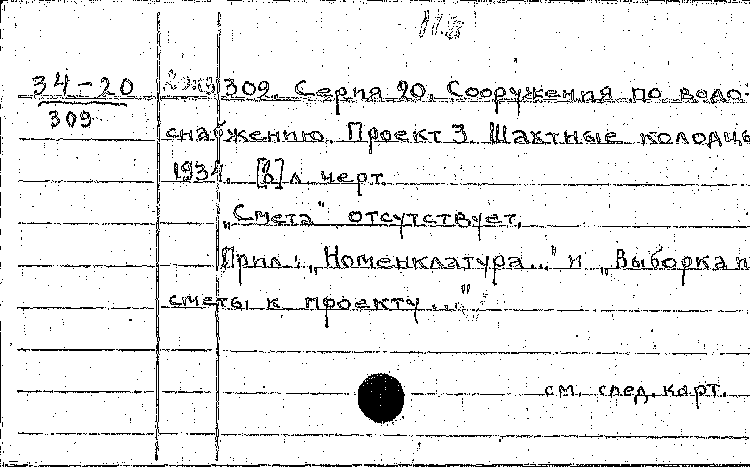 34-20 2 экз 309. Серия 90. Сооружения по водо-
309 снабжению. Проект 3. Шахтные колодцы
1934. [8] л. черт.
„Смета" отсутствует.
Прил.: „Номенклатура..." и „Выборка
сметы к проекту..."
см. след. карт.